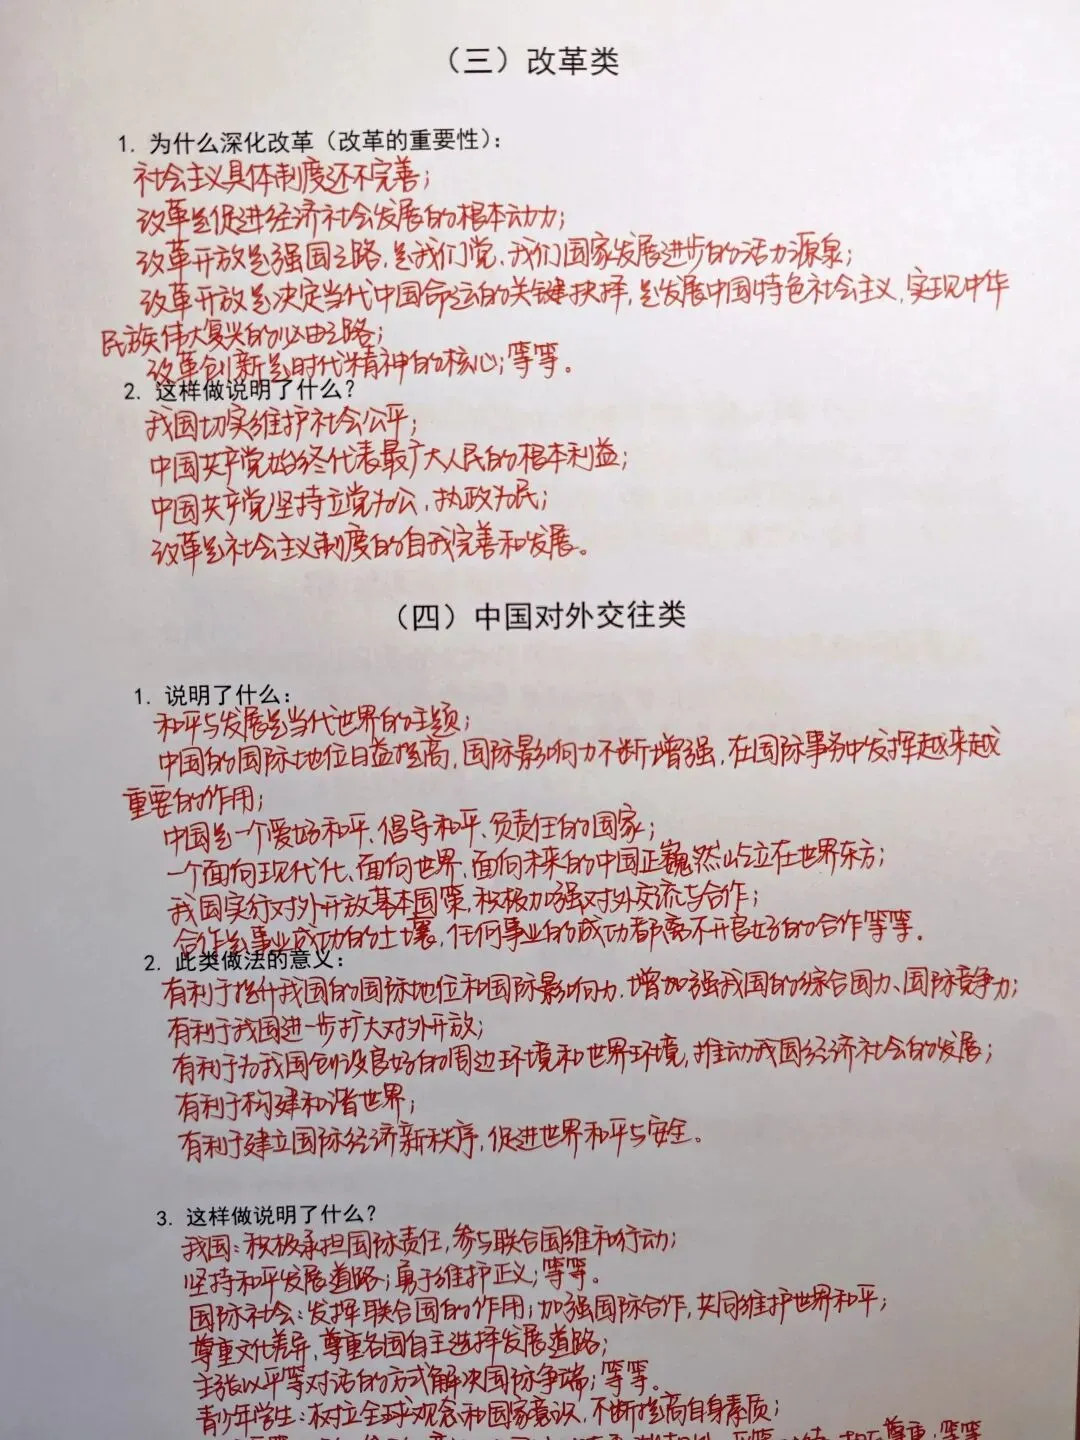 （三）改革类
1. 为什么深化改革（改革的重要性）：
社会主义具体制度还不完善；
改革是促进经济社会发展的根本动力；
改革开放是强国之路，是我们党、我们国家发展进步的活力源泉；
改革开放是决定当代中国命运的关键抉择，是发展中国特色社会主义、实现中华
民族伟大复兴的必由之路；
改革创新是时代精神的核心；等等。
2. 这样做说明了什么？
我国切实维护社会公平；
中国共产党始终代表最广大人民的根本利益；
中国共产党坚持立党为公、执政为民；
改革是社会主义制度的自我完善和发展。
（四）中国对外交往类
1. 说明了什么：
和平与发展是当代世界的主题；
中国的国际地位日益提高，国际影响力不断增强，在国际事务中发挥越来越
重要的作用；
中国是一个爱好和平、倡导和平、负责任的国家；
一个面向现代化、面向世界、面向未来的中国正巍然屹立在世界东方；
我国实行对外开放基本国策，积极加强对外交流与合作；
合作是事业成功的土壤，任何事业的成功都离不开良好的合作等等。
2. 此类做法的意义：
有利于提升我国的国际地位和国际影响力，增加强我国的综合国力、国际竞争力；
有利于我国进一步扩大对外开放；
有利于为我国创设良好的周边环境和世界环境，推动我国经济社会的发展；
有利于构建和谐世界；
有利于建立国际经济新秩序，促进世界和平与安全。
3. 这样做说明了什么？
我国：积极承担国际责任，参与联合国维和行动；
坚持和平发展道路；勇于维护正义；等等。
国际社会：发挥联合国的作用；加强国际合作，共同维护世界和平；
尊重文化差异，尊重各国自主选择发展道路；
主张以平等对话的方式解决国际争端；等等。
青少年学生：树立全球观念和国家意识，不断提高自身素质；